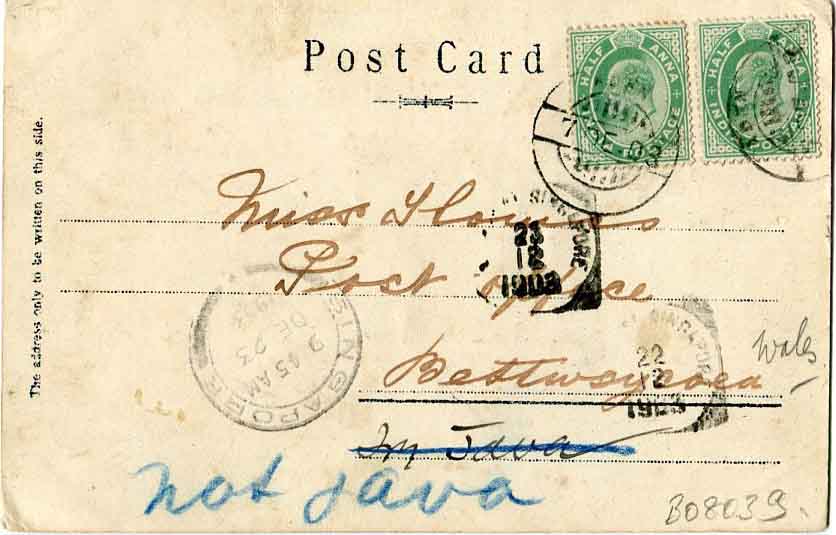 Post Card
HALF ANNA
INDIA POSTAGE
HALF ANNA
INDIA POSTAGE
The address only to be written on this side.
Miss
Post office
SINGAPORE
1903
SINGAPORE
9 45 AM
DE 23
SINGAPORE
22
12
1903
Wales
Java
not Java
B08039.